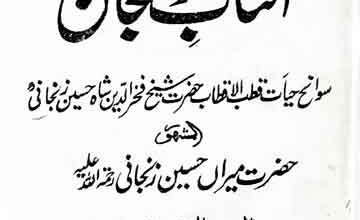 آفتابِ زنجان
سوانح حیات قطب الاقطاب حضرت شیخ فخر الدین شاہ حسین زنجانیؒ
المشہور
حضرت میراں حسین زنجانی رحمۃ اللہ علیہ